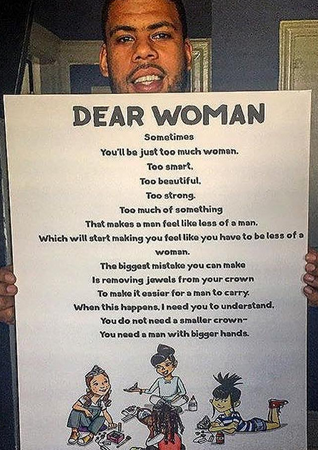 DEAR WOMAN
Sometimes
You'll be just too much woman.
Too smart.
Too beautiful.
Too strong.
Too much of something
That makes a man feel like less of a man.
Which will start making you feel like you have to be less of a
woman.
The biggest mistake you can make
Is removing jewels from your crown
To make it easier for a man to carry.
When this happens, I need you to understand,
You do not need a smaller crown-
You need a man with bigger hands.